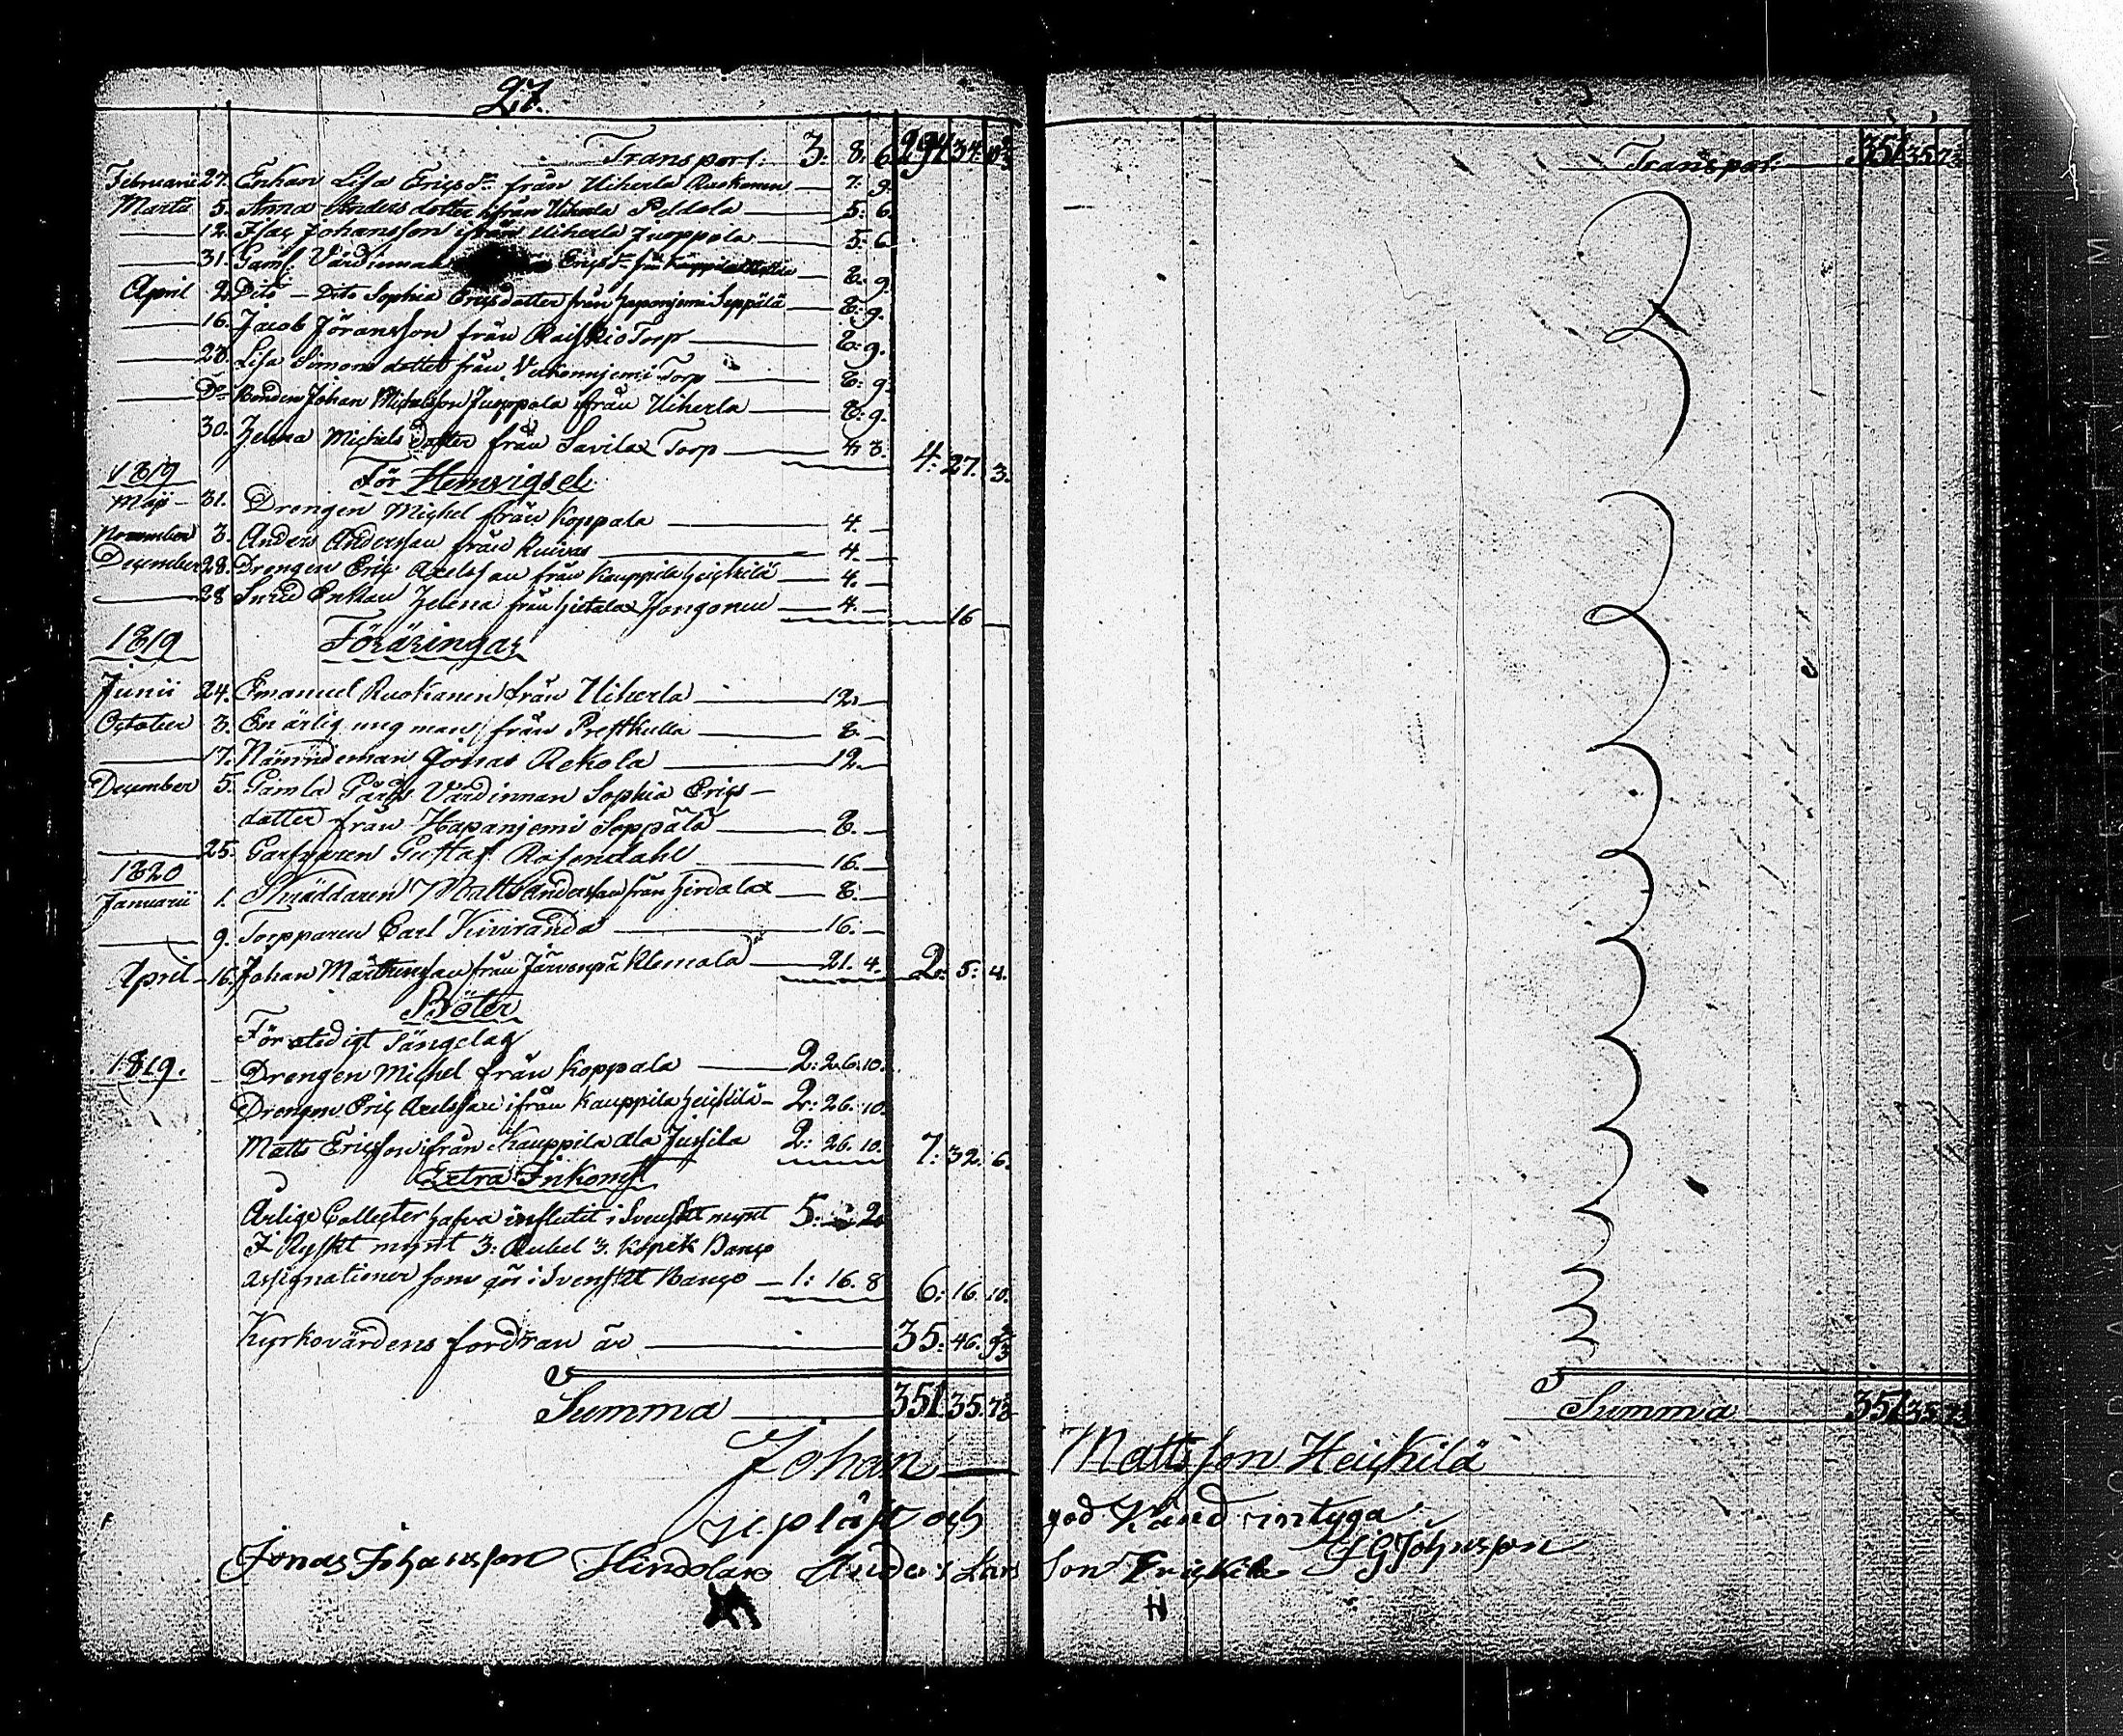 27.
Transport. 3. 8. 6. 294 34.
Februarii 27. Enkan Lisa Ericsdr från Uiherla Ruokonen 7. 9.
Martii 5. Anna Anders dotter ifrån Uiherla Peldola 5. 6.
12. Isac Johansson ifrån Uiherla Juoppola 5. 6.
31. Gaml. Värdinnan Ericsdr 8. 9.
April 2. Dito — Dito Sophia Ericsdotter från Hapanjemi Seppälä 8. 9.
16. Jacob Jöransson från Raiskio Torp 8. 9.
28. Lisa Simons dotter från Torp 8. 9.
Do Bonden Johan Michelsson Juoppola ifrån Uiherla 8. 9.
30. Helena Michels dotter från Savilax Torp 4. 3. 4. 27. 3.
1819 För Hemvigsel
Maji 31. Drengen Michel från Koppala 4.
November 3. Anders Andersson från Kuivas 4.
December 28. Drengen Eric Axelsson från Kauppila Heickilä 4.
28 Enkan Helena från Hietalax Hongonen 4. 16
1819 Föräringar
Junii 24. Emanuel Ruokanen från Uiherla 12.
October 3. En ärlig ung man från Prestkulla 8.
17. Nämndeman Jonas Rekola 12.
December 5. Gamla Gårds Värdinnan Sophia Erics-
dotter från Hapanjemi Seppälä 8.
25. Garfvaren Gustaf Rosendahl 16.
1820
Januarii 1. Skräddaren Matts Andersson från Hirdalax 8.
9. Torpparen Carl Kiviranda 16.
April 16. Johan Mårtensson från Järvenpä Klemola 21. 4. 2. 5. 4.
Böter
För otidigt Sängelag
1819. Drengen Michel från Koppala 2: 26. 10.
Drengen Eric Axelsson ifrån Kauppila Heickilä 2: 26. 10.
Matts Ericsson ifrån Kauppila ala Jussila 2: 26. 10. 7: 32. 6.
Extra Inkomst
Årlige Collecter hafva influtit i Svenskt mynt 5. 2
I Ryskt mynt 3: Rubel 3. Kopek Banco
Assignationer som gör i Svenskt Banco 1: 16. 8 6: 16. 10.
Kyrkovärdens fordran är 35: 46. 9 2/3
Summa 351. 35. 7
Transport 351 35 7
Summa 351 35 7
Johan Mattsson Heickilä
upläst och god Känd intyga
Jonas Johansson Hindolax Anders Lars son F G Johnsson
H